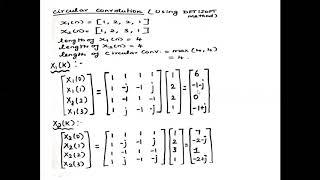 Circular Convolution (Using DFT & IDFT
method)
x₁(n) = [1, 2, 2, 1]
x₂(n) = [1, 2, 3, 1]
length of x₁(n) = 4
length of x₂(n) = 4
length of Circular Conv. = max(4,4)
= 4.
X₁(K):
X₁(0) = 1 1 1 1 1 = 6
X₁(1) 1 -j -1 j 2 -1-j
X₁(2) 1 -1 1 -1 2 0
X₁(3) 1 j -1 -j 1 -1+j
X₂(K):
X₂(0) = 1 1 1 1 1 = 7
X₂(1) 1 -j -1 j 2 -2-j
X₂(2) 1 -1 1 -1 3 1
X₂(3) 1 j -1 -j 1 -2+j